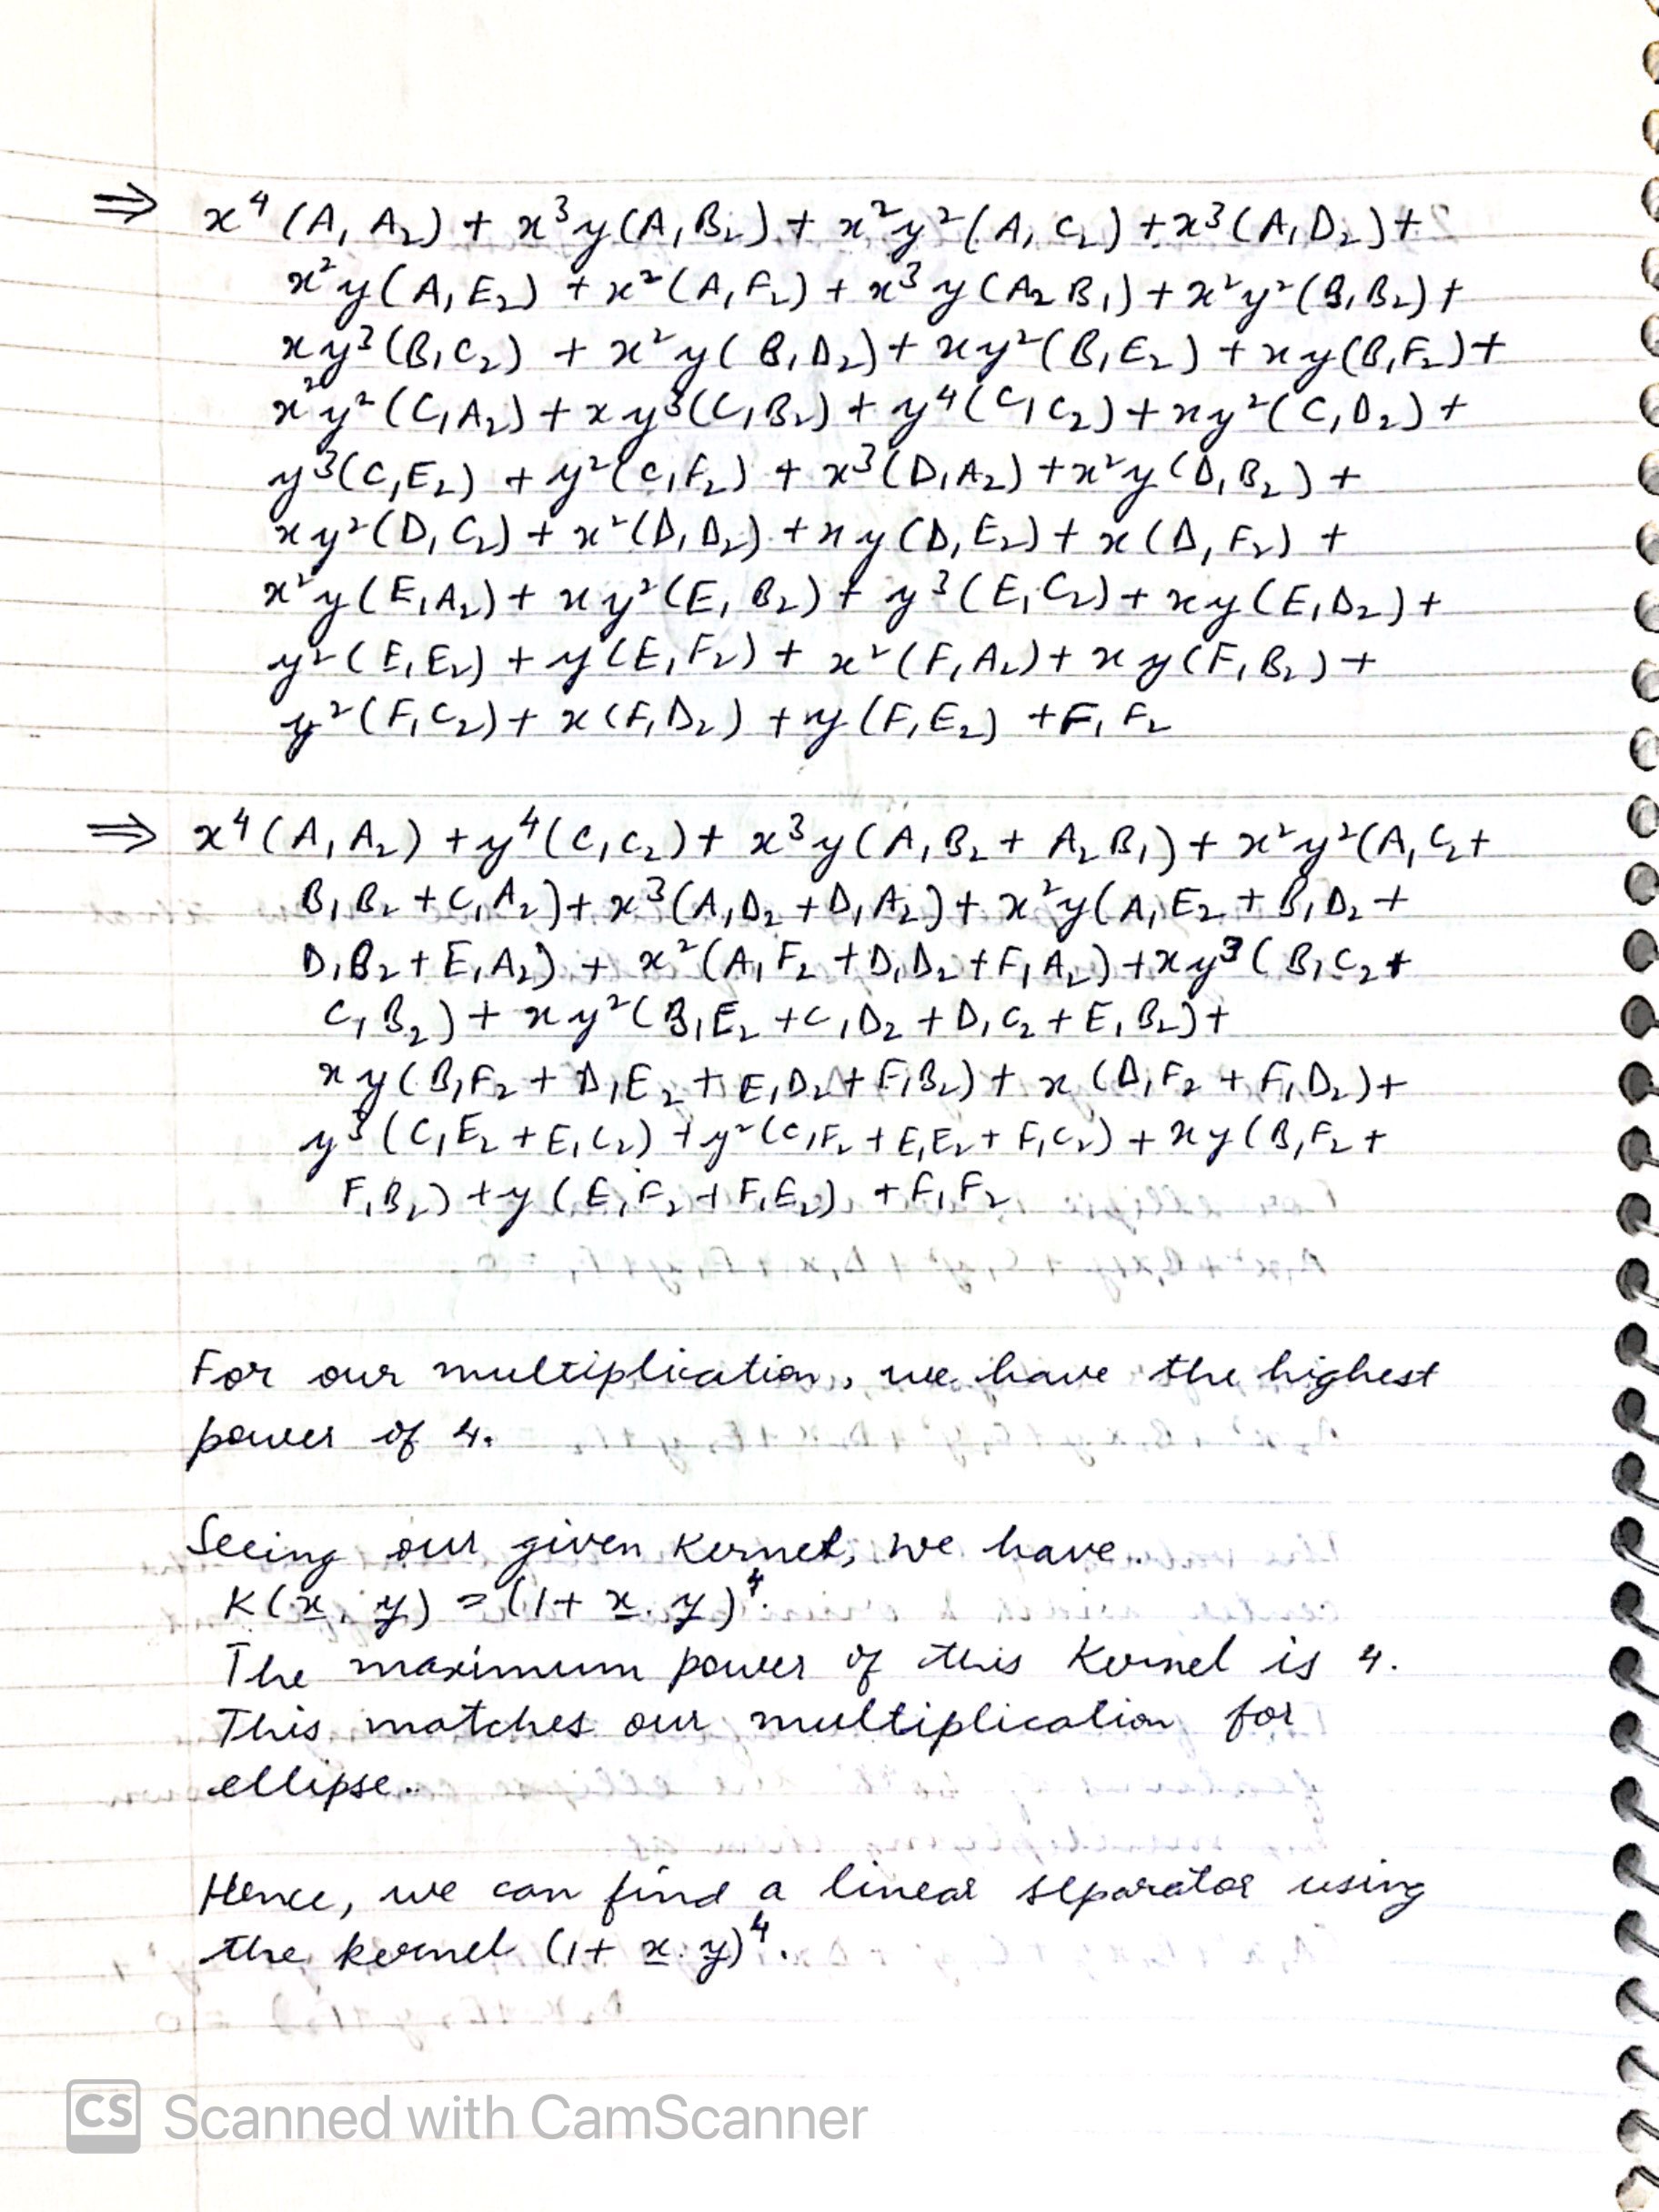 ⇒ x⁴(A₁A₂) + x³y(A₁B₂) + x²y²(A₁C₂) + x³(A₁D₂) +
x²y(A₁E₂) + x²(A₁F₂) + x³y(A₂B₁) + x²y²(B₁B₂) +
xy³(B₁C₂) + x²y(B₁D₂) + xy²(B₁E₂) + xy(B₁F₂) +
x²y²(C₁A₂) + xy³(C₁B₂) + y⁴(C₁C₂) + xy²(C₁D₂) +
y³(C₁E₂) + y²(C₁F₂) + x³(D₁A₂) + x²y(D₁B₂) +
xy²(D₁C₂) + x²(D₁D₂) + xy(D₁E₂) + x(D₁F₂) +
x²y(E₁A₂) + xy²(E₁B₂) + y³(E₁C₂) + xy(E₁D₂) +
y²(E₁E₂) + y(E₁F₂) + x²(F₁A₂) + xy(F₁B₂) +
y²(F₁C₂) + x(F₁D₂) + y(F₁E₂) + F₁F₂
⇒ x⁴(A₁A₂) + y⁴(C₁C₂) + x³y(A₁B₂ + A₂B₁) + x²y²(A₁C₂ +
B₁B₂ + C₁A₂) + x³(A₁D₂ + D₁A₂) + x²y(A₁E₂ + B₁D₂ +
D₁B₂ + E₁A₂) + x²(A₁F₂ + D₁D₂ + F₁A₂) + xy³(B₁C₂ +
C₁B₂) + xy²(B₁E₂ + C₁D₂ + D₁C₂ + E₁B₂) +
xy(B₁F₂ + D₁E₂ + E₁D₂ + F₁B₂) + x(D₁F₂ + F₁D₂) +
y³(C₁E₂ + E₁C₂) + y²(C₁F₂ + E₁E₂ + F₁C₂) + xy(B₁F₂ +
F₁B₂) + y(E₁F₂ + F₁E₂) + F₁F₂
For our multiplication, we have the highest
power of 4.
Seeing our given Kernel, we have.
K(x, y) = (1 + x.y)⁴.
The maximum power of this Kernel is 4.
This matches our multiplication for
ellipse.
Hence, we can find a linear separator using
the kernel (1 + x.y)⁴.
CS Scanned with CamScanner